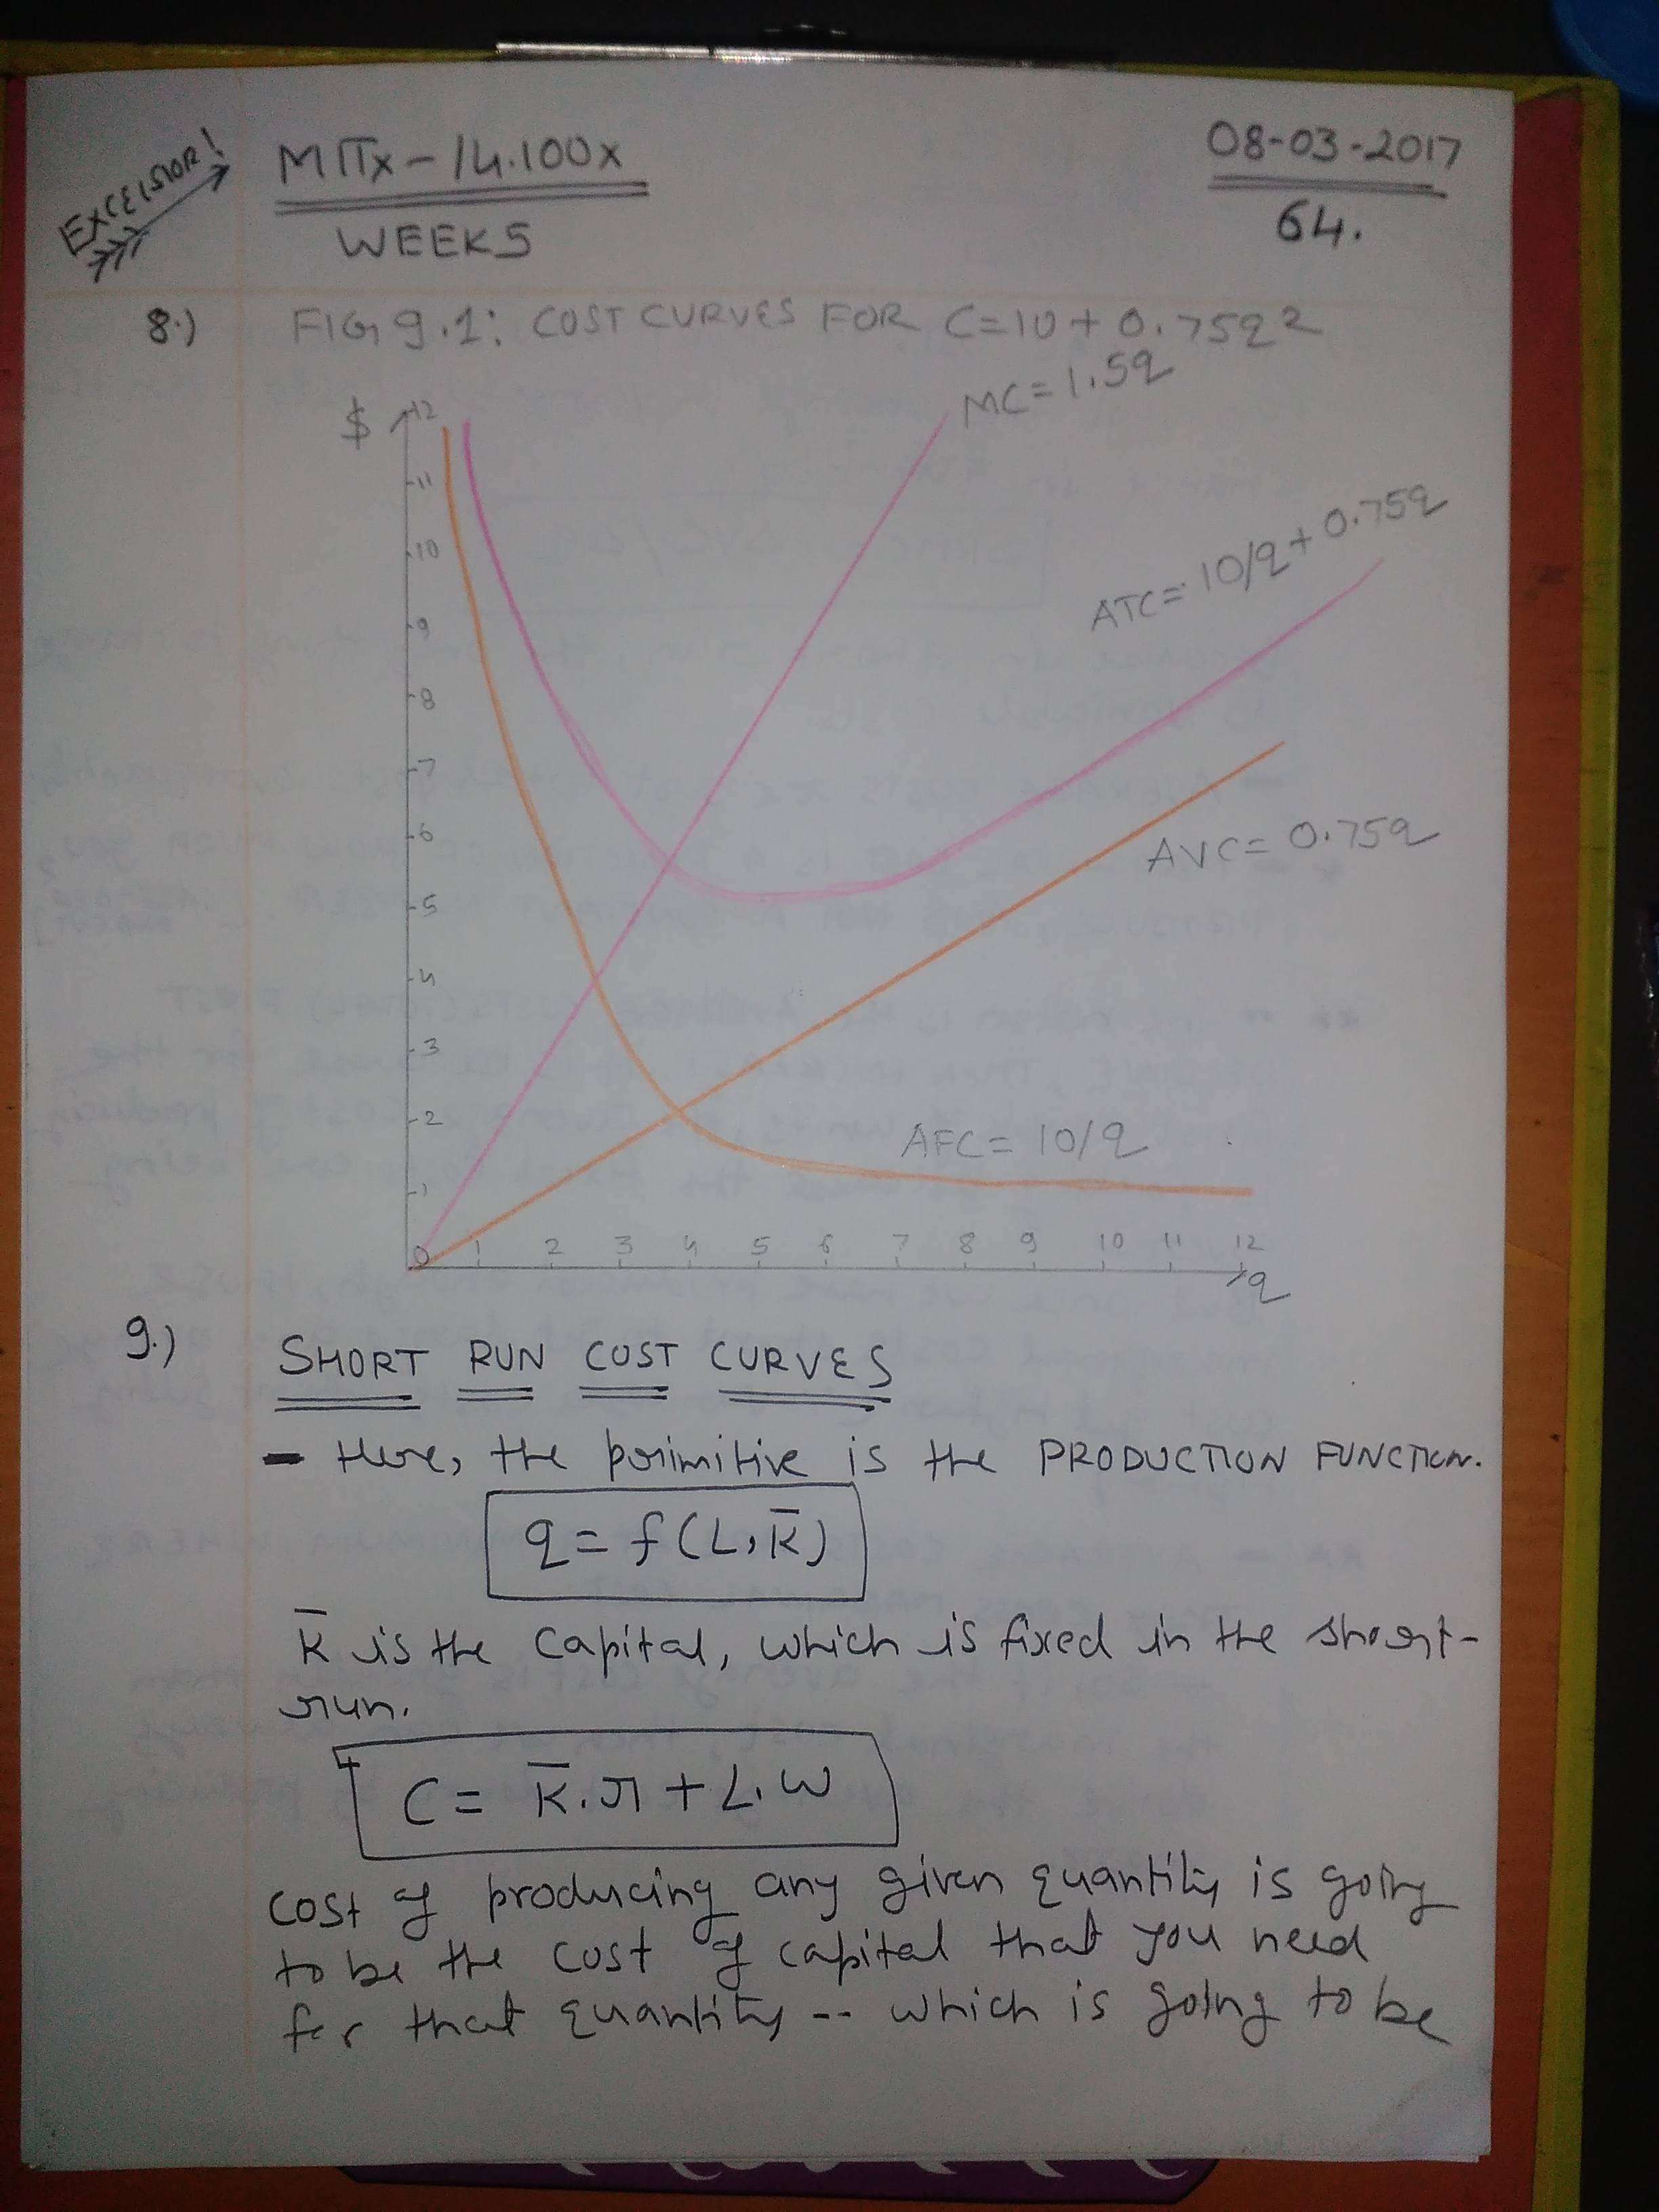 EXCELSIOR!
MITx-14.100x
WEEK 5
08-03-2017
64.
8.) FIG 9.1: COST CURVES FOR C=10+0.75q2
MC=1.5q
$
12
11
10
9
8
7
6
5
4
3
2
1
ATC= 10/q+0.75q
AVC= 0.75q
AFC= 10/q
0 1 2 3 4 5 6 7 8 9 10 11 12
q
9.) SHORT RUN COST CURVES
- Here, the primitive is the PRODUCTION FUNCTION.
q= f(L,K̅)
K̅ is the capital, which is fixed in the short-
run.
C= K̅.r+L.w
cost of producing any given quantity is going
to be the cost of capital that you need
for that quantity -- which is going to be